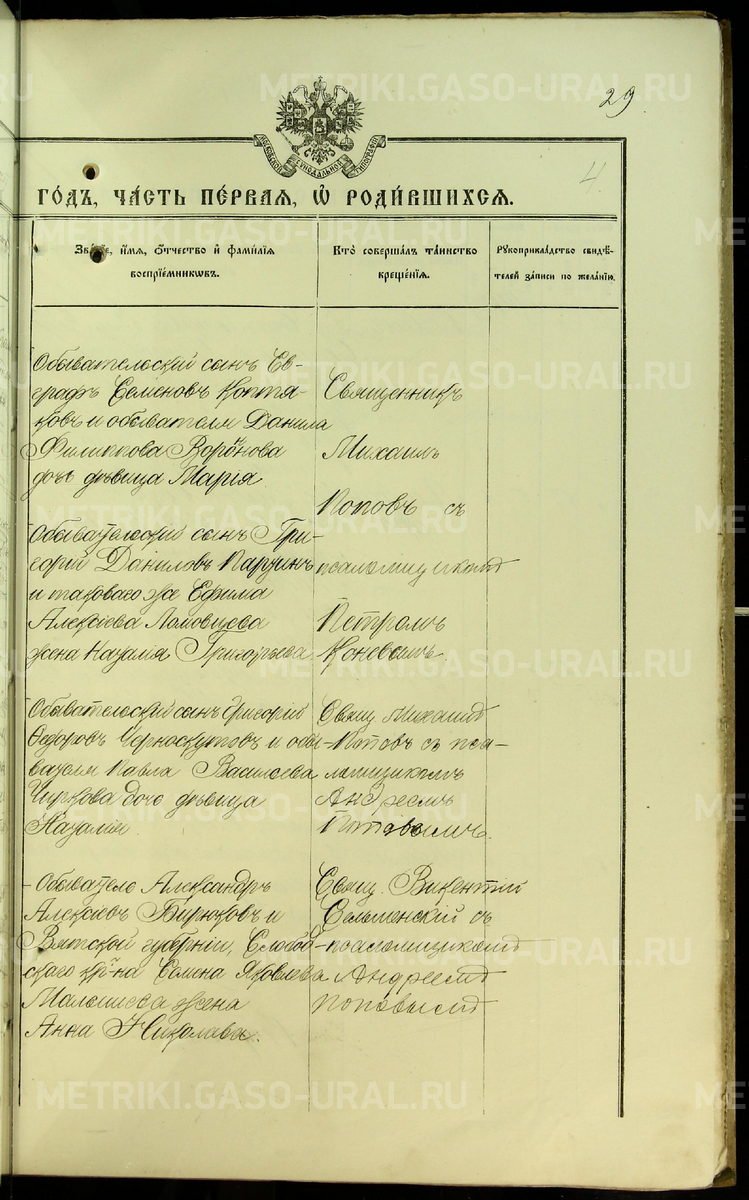 METRIKI.GASO-URAL.RU
29
4.
МОСКОВСКОЙ СѴНОДАЛЬНОЙ ТИПОГРАФІИ
ГО́ДЪ, ЧА́СТЬ ПЕ́РВАЯ, Ѡ҆ РОДИ́ВШИХСЯ.
Зва́ніе, и҆́мя, ѻ҆́тчество и҆ фами́лія
воспріе́мникѡвъ.
Кто̀ соверша́лъ та́инство
креще́нія.
Рукоприкла́дство свидѣ́-
телей за́писи по жела́нію.
Обывательскій сынъ Ев-
графъ Семеновъ Коптя-
ковъ и обывателя Данила
Филиппова Воронова
дочь дѣвица Марія.
Священникъ
Михаилъ
Поповъ съ
Обывательскій сынъ Гри-
горій Даниловъ Паршинъ
и таковаго же Ефима
Алексіева Ломовцева
жена Наталія Григорьева
псаломщикомъ
Петромъ
Коневымъ.
Обывательскій сынъ Григорій
Ѳедоровъ Черноскутовъ и обы-
вателя Павла Васильева
Чиркова дочь дѣвица
Наталія.
Свящ. Михаилъ
Поповъ съ пса-
ломщикомъ
Андреемъ
Поповымъ.
Обыватель Александръ
Алексіевъ Бирюковъ и
Вятской губерніи, Слобод-
скаго кр-на Семена Яковлева
Малышева жена
Анна Николаева.
Свящ. Викентій
Сельменскій съ
псаломщикомъ
Андреемъ
Поповымъ